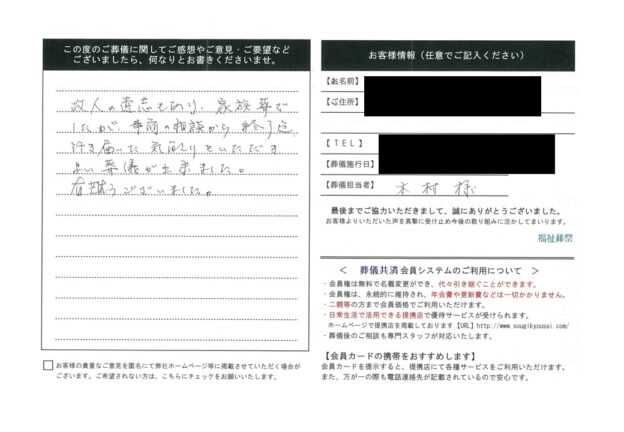 この度のご葬儀に関してご感想やご意見・ご要望など
ございましたら、何なりとお書きくださいませ。
故人の遺志もあり、家族葬で
したが、事前の相談から終了迄
行き届いた気配りをいただき
よい葬儀が出来ました。
有難うございました。
お客様の貴重なご意見を匿名にて弊社ホームページ等に掲載させていただく場合が
ございます。ご希望されない方は、こちらにチェックをお願いいたします。
お客様情報（任意でご記入ください）
【お名前】
【ご住所】
【ＴＥＬ】
【葬儀施行日】
【葬儀担当者】 木村 様
最後までご協力いただきまして、誠にありがとうございました。
お客様よりいただいた声を真摯に受け止め今後の取り組みに活かしてまいります。
福祉葬祭
＜ 葬儀共済会員システムのご利用について ＞
・会員権は無料で名義変更ができ、代々引き継ぐことができます。
・会員権は、永続的に維持され、年会費や更新費などは一切かかりません。
・二親等の方まで会員価格でご利用いただけます。
・日常生活で活用できる提携店で優待サービスが受けられます。
ホームページで提携店を掲載しております【URL】http://www.sougikyousai.com/
・葬儀後のご相談も専門スタッフが対応いたします。
【会員カードの携帯をおすすめします】
会員カードを提示すると、提携店にて各種サービスをご利用いただけます。
また、万が一の際も電話連絡先が記載されているので安心です。